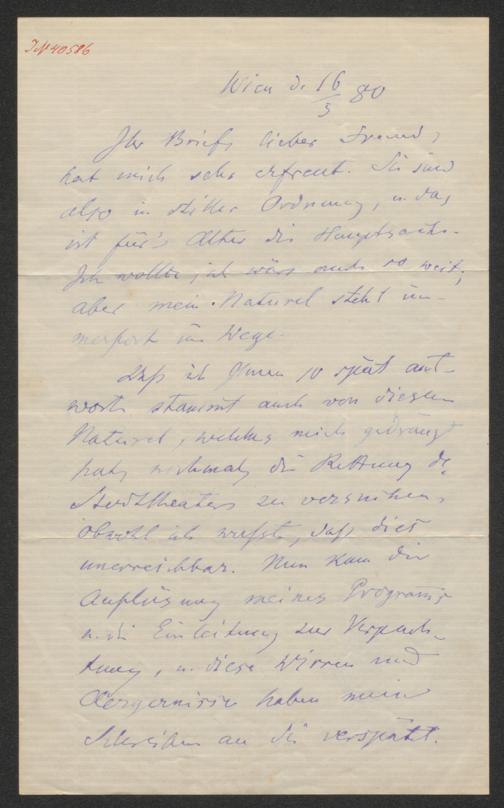 IN 40586
Wien d. 16/3 80
Ihr Brief, lieber Freund,
hat mich sehr erfreut. Sie sind
also in stiller Ordnung, u. das
ist für's Alter die Hauptsache.
Ich wollte, ich wäre auch so weit;
aber mein Naturel steht im-
merfort im Wege.
Daß ich Ihnen so spät ant-
worte stammt auch von diesem
Naturel, welches mich gedrängt
hat, nochmals die Rettung des
Stadttheaters zu versuchen,
obwohl ich wußte, daß dies
unerreichbar. Nun kam die
Auflösung meines Programms
u. die Einleitung zur Verpach-
tung, u. diese Wirren und
Aergernisse haben mein
Schreiben an Sie verspätet.